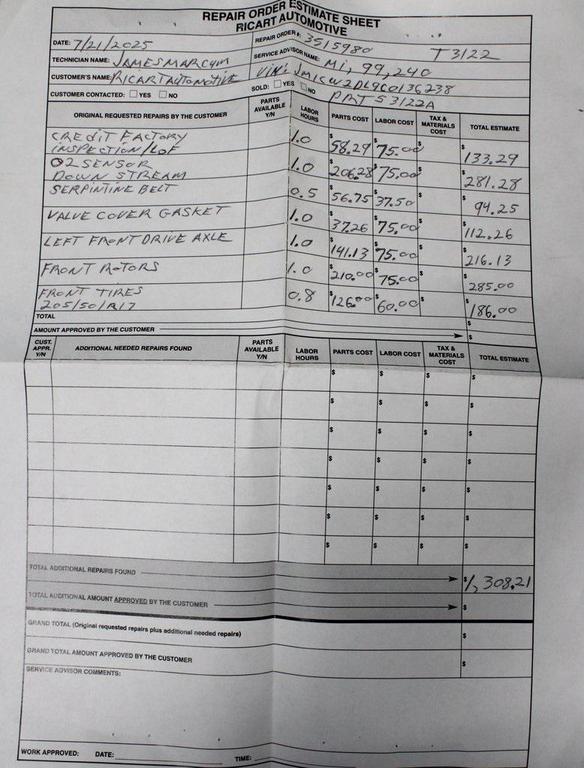 REPAIR ORDER ESTIMATE SHEET
RICART AUTOMOTIVE
DATE: 7/21/2025 REPAIR ORDER #: 3515980 T3122
TECHNICIAN NAME: JAMES MARCUM SERVICE ADVISOR NAME: MI, 99,240
CUSTOMER'S NAME: RICART AUTOMOTIVE VIN: JM1CW2DL9C0136238
CUSTOMER CONTACTED: YES NO SOLD: YES NO PRT 53122A
ORIGINAL REQUESTED REPAIRS BY THE CUSTOMER PARTS AVAILABLE Y/N LABOR HOURS PARTS COST LABOR COST TAX & MATERIALS COST TOTAL ESTIMATE
CREDIT FACTORY
INSPECTION/LOF 1.0 $58.29 $75.00 $ $133.29
O2 SENSOR
DOWN STREAM 1.0 $206.28 $75.00 $ $281.28
SERPINTINE BELT 0.5 $56.75 $37.50 $ $94.25
VALVE COVER GASKET 1.0 $37.26 $75.00 $ $112.26
LEFT FRONT DRIVE AXLE 1.0 $141.13 $75.00 $ $216.13
FRONT ROTORS 1.0 $210.00 $75.00 $ $285.00
FRONT TIRES
205/50/R17 0.8 $126.00 $60.00 $ $186.00
TOTAL $
AMOUNT APPROVED BY THE CUSTOMER $
CUST. APPR. Y/N ADDITIONAL NEEDED REPAIRS FOUND PARTS AVAILABLE Y/N LABOR HOURS PARTS COST LABOR COST TAX & MATERIALS COST TOTAL ESTIMATE
$ $ $ $
$ $ $ $
$ $ $ $
$ $ $ $
$ $ $ $
$ $ $ $
$ $ $ $
TOTAL ADDITIONAL REPAIRS FOUND $1,308.21
TOTAL ADDITIONAL AMOUNT APPROVED BY THE CUSTOMER $
GRAND TOTAL (Original requested repairs plus additional needed repairs) $
GRAND TOTAL AMOUNT APPROVED BY THE CUSTOMER $
SERVICE ADVISOR COMMENTS:
WORK APPROVED: DATE: TIME: